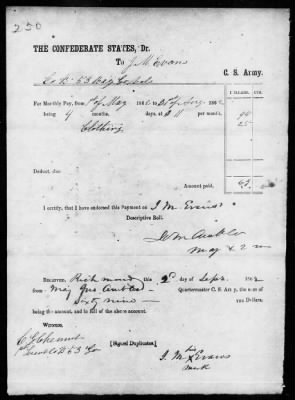 250
THE CONFEDERATE STATES, Dr.
To J M Evans
Co 53 C. S. Army.
DOLLARS. CTS.
For Monthly Pay, from 1st of May 1862 to 31st of Aug. 1862
being 4 months, days, at $ 11 per month, 44
Clothing 25
Deduct, due
Amount paid, 69
I certify, that I have endorsed this Payment on J M Evans'
Descriptive Roll.
Wm Ambler
Maj & 2 m
RECEIVED, Richmond this 2d of Sept. 1862
from Maj Ambler Quartermaster C. S. Army, the sum of
Sixty nine Dollars,
being the amount, and in full of the above account.
WITNESS,
53
[Signed Duplicates.]
his
J. M x Evans
mark